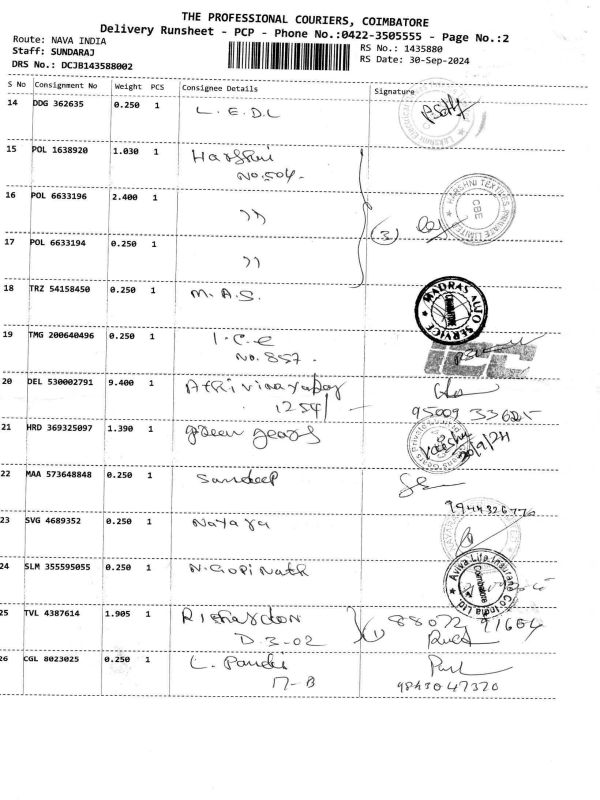 THE PROFESSIONAL COURIERS, COIMBATORE
Delivery Runsheet - PCP - Phone No.:0422-3505555 - Page No.:2
Route: NAVA INDIA
Staff: SUNDARAJ
DRS No.: DCJB143588002
RS No.: 1435880
RS Date: 30-Sep-2024
S No Consignment No Weight PCS Consignee Details Signature
14 DDG 362635 0.250 1 L.E.D.L
15 POL 1638920 1.030 1 Harshni
No.504.
16 POL 6633196 2.400 1 ))
(3)
HARSHNI TEXTILES PRIVATE LIMITED
CBE
17 POL 6633194 0.250 1 ))
18 TRZ 54158450 0.250 1 M.A.S.
MADRAS AUTO SERVICE
COIMBATORE
19 TMG 200640496 0.250 1 I.C.E
No.857.
20 DEL 530002791 9.400 1
1254/
95009 33625
21 HRD 369325097 1.390 1 green gears
30/9/24
22 MAA 573648848 0.250 1 Sandeep
9944326770
23 SVG 4689352 0.250 1 Nayaya
24 SLM 355595055 0.250 1 N.Gopinath
Aviva Life Insurance Co India Ltd.
Coimbatore
25 TVL 4387614 1.905 1 Richardson
D-3-02
88072 91664
26 CGL 8023025 0.250 1 L. Pandi
17-B
9843047320